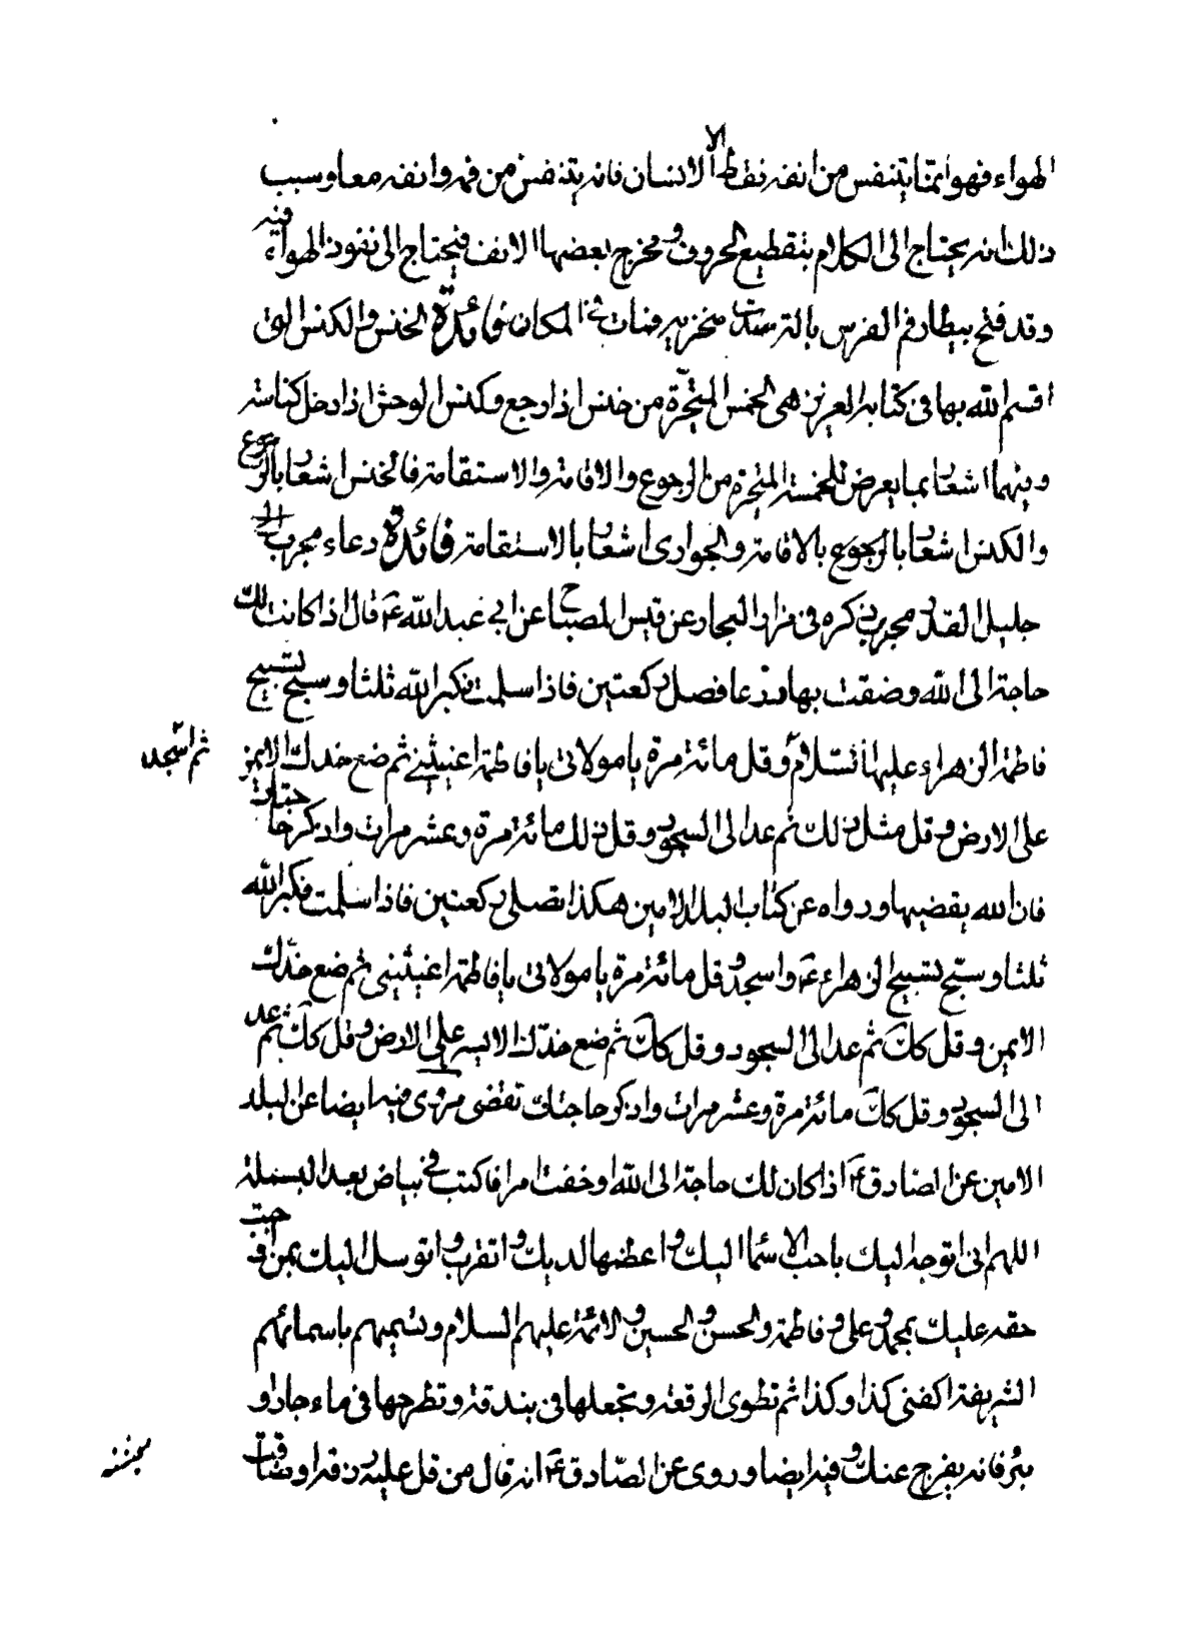 الهواء فهو انما يتنفس من انفه فقط الا الانسان فانه يتنفس من فمه وانفه معا وسبب
ذلك انه يحتاج الى الكلام بتقطيع الحروف ومخرج بعضها الانف فيحتاج الى نفوذ الهواء فيه
وقد فتح بيطار فم الفرس بالة منخريه فمات في المكان فائدة الخنس والكنس التي
اقسم الله بها في كتابه العزيز هي الخمس المتحيرة من خنس اذا رجع وكنس الوحش اذا دخل كناسه
وبينهما اشعار بما يعرض للخمسة المتحيرة من الرجوع والاقامة والاستقامة فالخنس اشعار بالرجوع
والكنس اشعار بالرجوع بالاقامة والجوارى اشعار بالاستقامة فائدة دعاء مجرب
جليل القدر مجرب ذكره في مزار البحار عن قبس المصباح عن ابي عبد الله ع قال اذا كانت لك
حاجة الى الله وضقت بها ذرعا فصل ركعتين فاذا سلمت فكبر الله ثلثا وسبح تسبيح
فاطمة الزهراء عليها السلام وقل مائة مرة يا مولاتى يا فاطمة اغيثينى ثم ضع خدك الايمن
ثم اسجد
على الارض وقل مثل ذلك ثم عد الى السجود وقل ذلك مائة مرة وعشر مرات واذكر حاجتك
فان الله يقضيها ورواه عن كتاب البلد الامين هكذا تصلى ركعتين فاذا سلمت فكبر الله
ثلثا وسبح تسبيح الزهراء ع واسجد وقل مائة مرة يا مولاتى يا فاطمة اغيثينى ثم ضع خدك
الايمن وقل كك ثم عد الى السجود وقل كك ثم ضع خدك الايسر على الارض وقل كك ثم عد
الى السجود وقل كك مائة مرة وعشر مرات واذكر حاجتك تقضى مروى فيه ايضا عن البلد
الامين عن الصادق ع اذا كان لك حاجة الى الله او خفت امرا فاكتب في بياض بعد البسملة
اللهم انى اتوجه اليك باحب الاسماء اليك واعظمها لديك واتقرب واتوسل اليك بمن اوجبت
حقه عليك بمحمد وعلى وفاطمة والحسن والحسين والائمة عليهم السلام وتسميهم باسمائهم
الشريفة اكفنى كذا وكذا ثم تطوى الرقعة وتجعلها في بندقة وتطرحها في ماء جار او
بئر فانه يفرج عنك وفيه ايضا وروى عن الصادق ع انه قال من قل عليه رزقه او ضاقت
معيشته